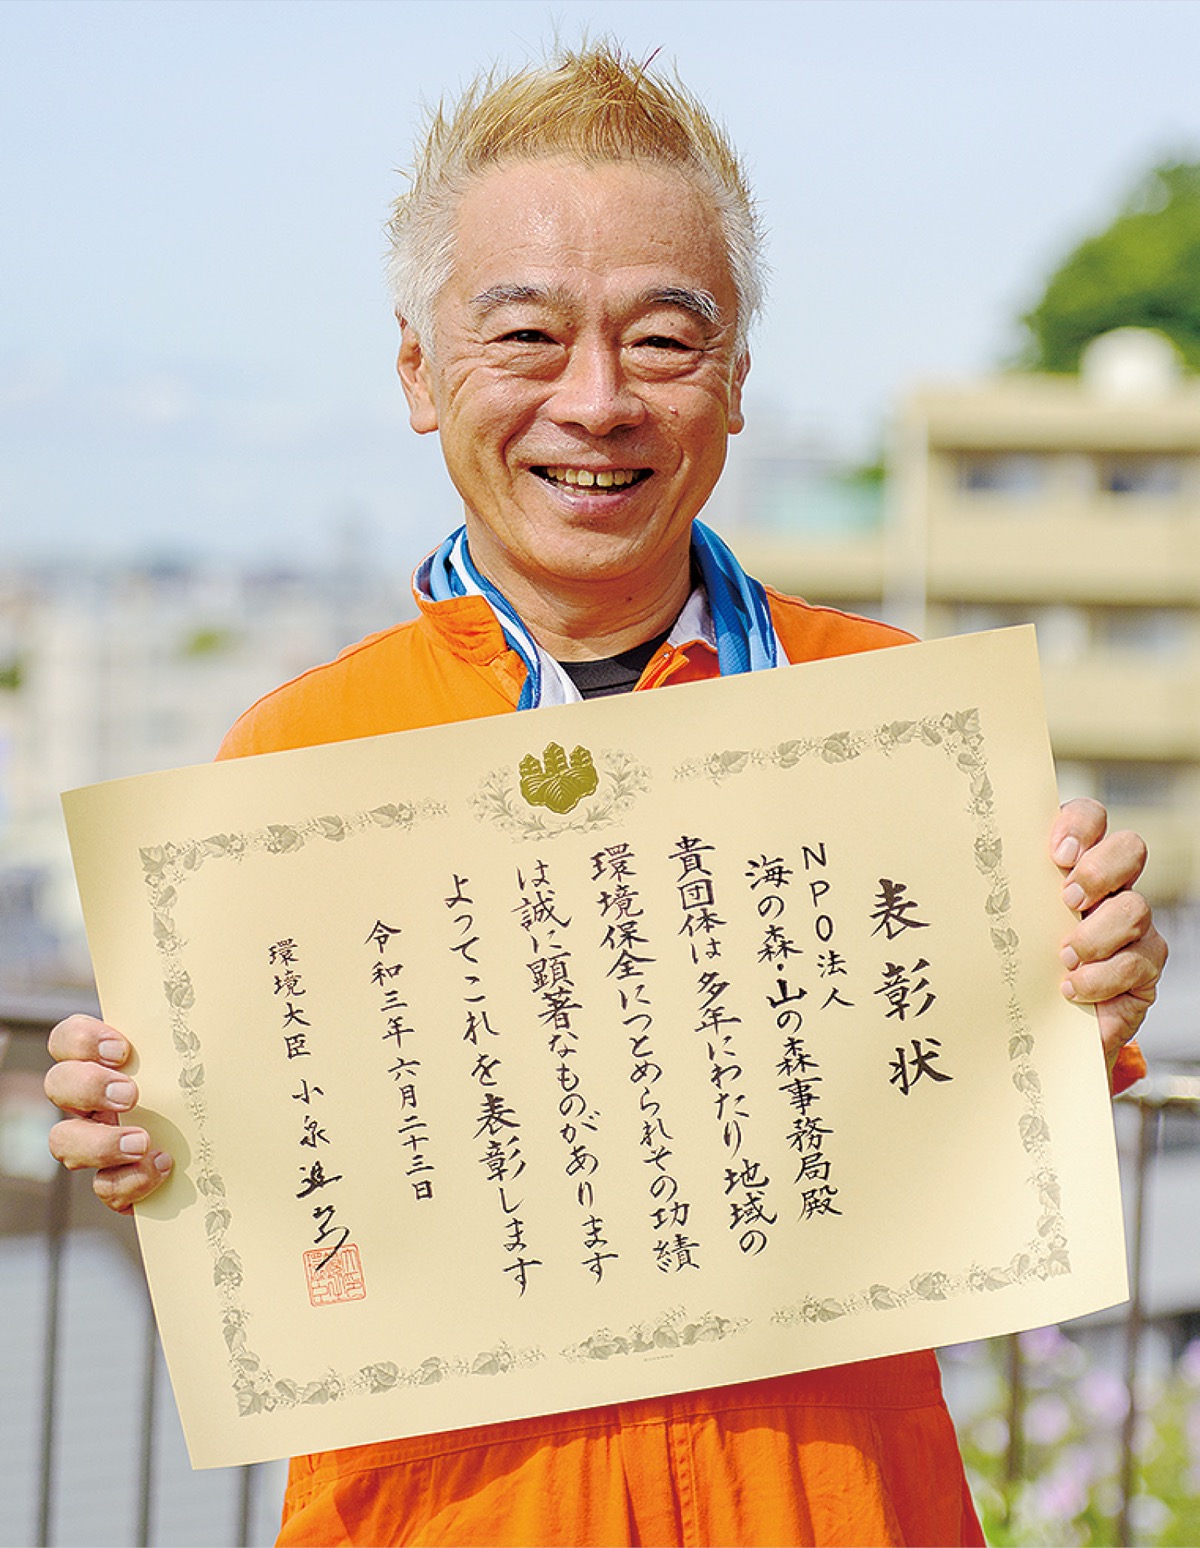 表彰状
NPO法人
海の森・山の森事務局殿
貴団体は多年にわたり地域の
環境保全につとめられその功績
は誠に顕著なものがあります
よってこれを表彰します
令和三年六月二十三日
環境大臣 小泉進次郎